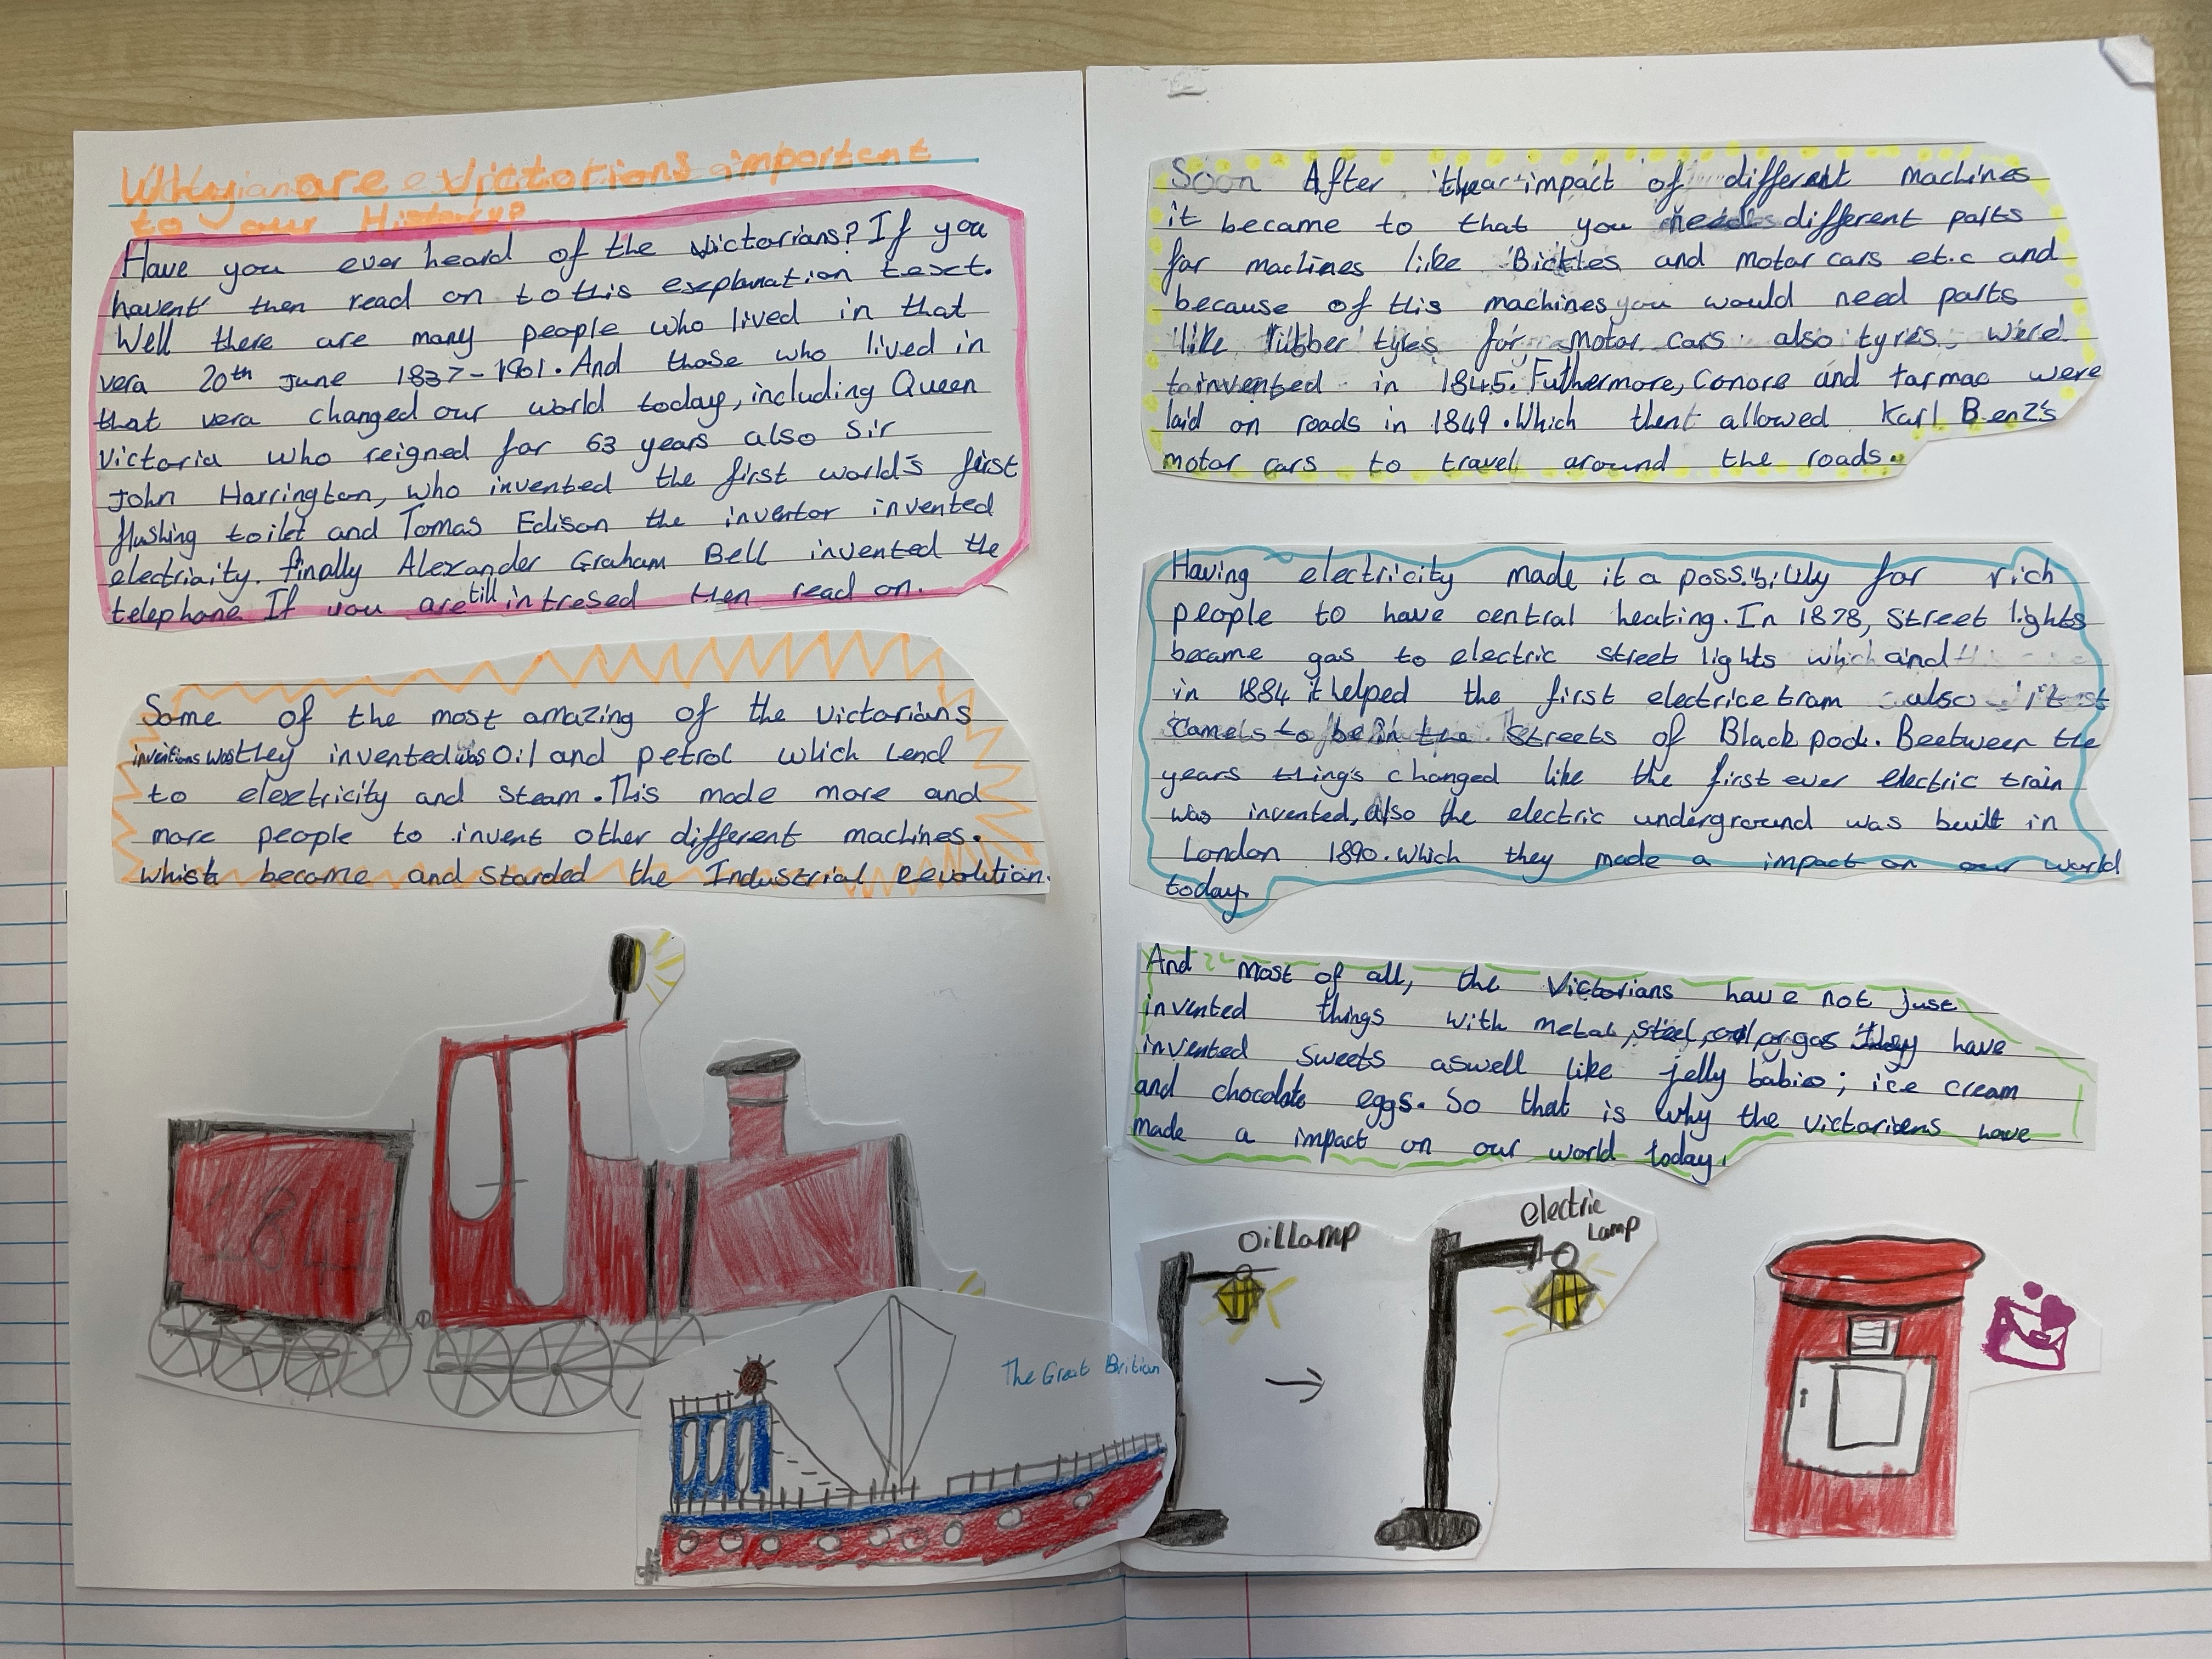 Why are victorians important
to our History?
Have you ever heard of the victorians? If you
havent then read on to this explanation text.
Well there are many people who lived in that
vera 20th June 1837-1901. And those who lived in
that vera changed our world today, including Queen
Victoria who reigned for 63 years also Sir
John Harrington, who invented the first world's first
flushing toilet and Tomas Edison the inventor invented
electriaity. finally Alexander Graham Bell invented the
telephone If you are till intresed then read on.
Some of the most amazing of the victorians
inventions was they invented was Oil and petrol which lend
to elextricity and steam. This made more and
more people to invent other different machines.
which become and starded the Industrial revolution.
Soon After the impact of different machines
it became to that you need different parts
for machines like Bickles and motor cars et.c and
because of this machines you would need parts
like rubber tyres for motor cars also tyres were
invented in 1845. Futhermore, Concre and tarmac were
laid on roads in 1849. Which then allowed Karl Benz's
motor cars to travel around the roads.
Having electricity made it a possibility for rich
people to have central heating. In 1878, Street lights
became gas to electric street lights which and
in 1884 it helped the first electrice tram also
camels to be in the Streets of Black pool. Beetween the
years thing's changed like the first ever electric train
was invented, Also the electric underground was built in
London 1890. which they made a impact on our world
today.
And most of all, the Victorians have not just
invented things with metal, steel, oil, or gas they have
invented sweets aswell like jelly babies; ice cream
and chocolate eggs. So that is why the victoriens have
made a impact on our world today.
1841
The Great Britian
Oil Lamp
electric
Lamp